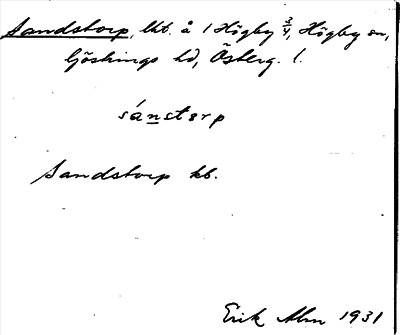 Sandstorp, lht. å 1 Högby 3/4, Högby sn,
Göstrings hd, Österg. l.
sánstorp
Sandstorp kb.
Erik Alm 1931